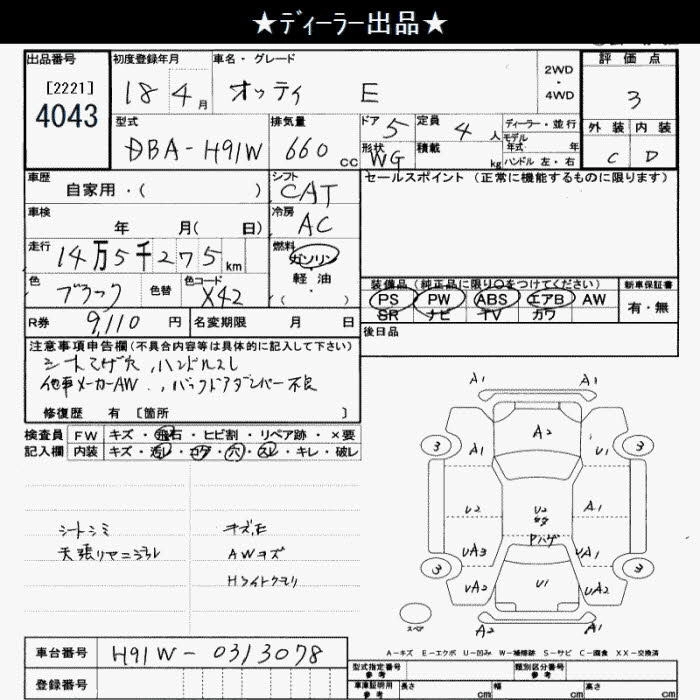 ★ディーラー出品★
出品番号 [2221] 4043
初度登録年月 18 4月
車名・グレード オッティ E
2WD・4WD
評価点 3
外装 C 内装 D
型式 DBA-H91W
排気量 660cc
ドア 5 形状 WG
定員 4人 積載 kg
ディーラー・並行
モデル年式 年
ハンドル 左・右
車歴 自家用・( )
シフト CAT
セールスポイント(正常に機能するものに限ります)
車検 年 月( 日)
冷房 AC
走行 14万5千275km
燃料 ガソリン 軽油 ( ・ )
色 ブラック 色替 色コード X42
装備品(純正品に限り○をつけてください)
PS PW ABS エアB AW
SR ナビ TV カワ
新車保証書 有・無
R券 9,110円 名変期限 月 日
後日品
注意事項申告欄(不具合内容等は具体的に記入して下さい)
シートコゲ穴、ハンドルスレ
他車メーカーAW、バックドアダンパー不良
修復歴 有 [箇所 ]
検査員 FW キズ・飛石・ヒビ割・リペア跡・×要
記入欄 内装 キズ・汚レ・コゲ・穴・スレ・キレ・破レ
シートシミ キズ,E
天張リヤ AWキズ
Hライトクモリ
A1 A1
3 A2 3
A1 U1
U2 U2 A1
ヤハゲ
UA3 UA1
3 3
UA2 U1 UA2
スペア A2 A2
A-キズ E-エクボ U-凹み W-補修跡 S-サビ C-腐食 XX-交換済
車台番号 H91W-0313078
登録番号
型式指定番号 参考 類別区分番号 参考
車庫証明用 参考 長さ cm 幅 cm 高さ cm